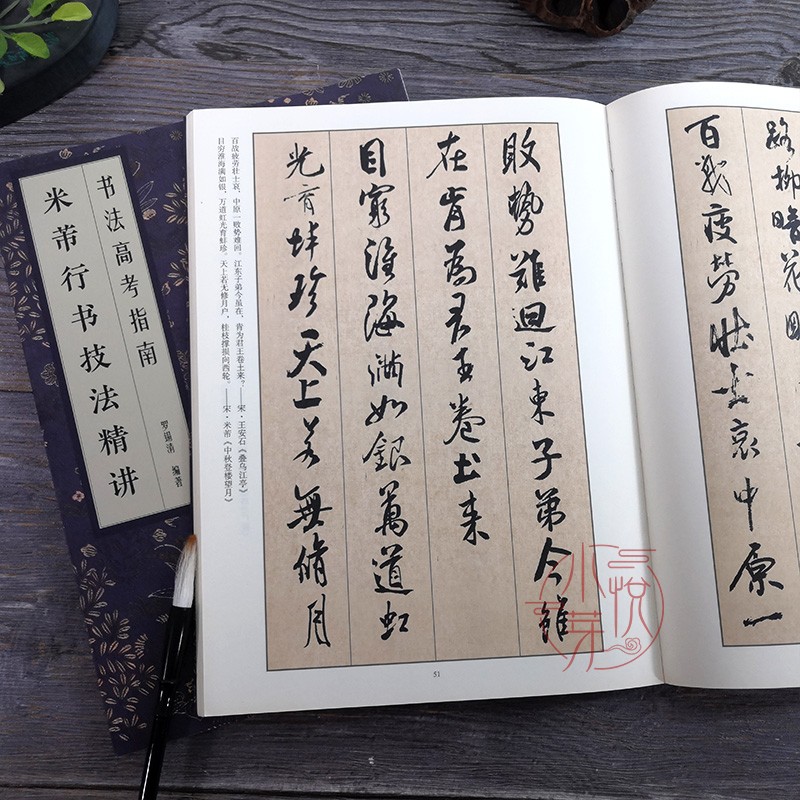 书法高考指南
米芾行书技法精讲
罗锡清 编著
路柳暗花明
百戰疲勞壯士哀中原一
敗勢難迴江東子弟今雖
在肯為君王卷土來
目窮淮海滿如銀萬道虹
光育蚌珍天上若無脩月
百战疲劳壮士哀，中原一败势难回。江东子弟今虽在，肯为君王卷土来？——宋·王安石《叠乌江亭》
目穷淮海满如银，万道虹光育蚌珍。天上若无修月户，桂枝撑损向西轮。——宋·米芾《中秋登楼望月》
51